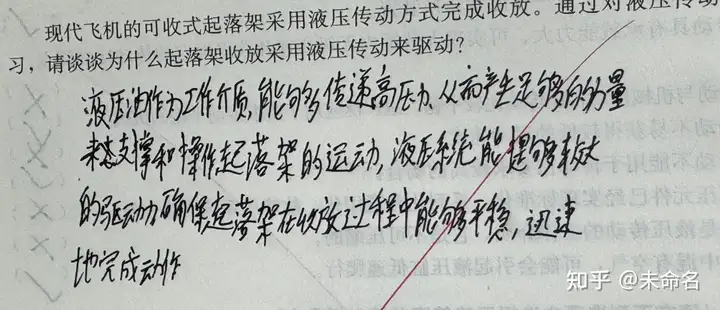 现代飞机的可收式起落架采用液压传动方式完成收放。通过对液压传动
习，请谈谈为什么起落架收放采用液压传动来驱动？
液压油作为工作介质,能够传递高压力,从而产生足够的力量
来支撑和操作起落架的运动,液压系统能提够较大
的驱动力确保起落架在收放过程中能够平稳,迅速
地完成动作
知乎 @未命名